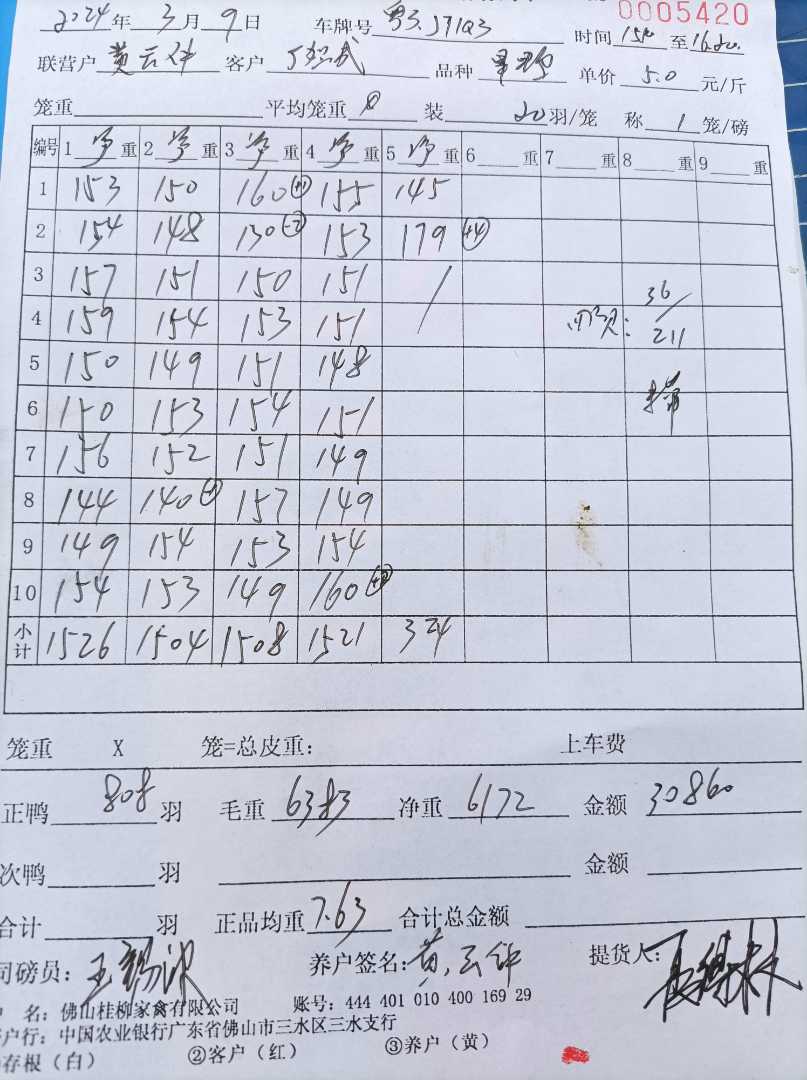 0005420
2024年3月9日 车牌号 粤 J71Q3 时间 至16.20
联营户 黄云钟 客户 品种 单价 5.0 元/斤
笼重 平均笼重 0 装 20羽/笼 称 1 笼/磅
编号 1 净 重 2 净 重 3 净 重 4 净 重 5 净 重 6 重 7 重 8 重 9 重
1 153 150 160 (+1) 155 145
2 154 148 130 (-2) 153 179 (+4)
3 157 151 150 151 /
4 159 154 153 151 36/211
5 150 149 151 148
6 150 153 154 151
7 156 152 151 149
8 144 140 157 149
9 149 154 153 154
10 154 153 149 160
小计 1526 1504 1508 1521 324
笼重 X 笼=总皮重: 上车费
正鸭 808 羽 毛重 6383 净重 6172 金额 30860
次鸭 羽 金额
合计 羽 正品均重 7.63 合计总金额
司磅员: 养户签名: 黄云钟 提货人:
户 名: 佛山桂柳家禽有限公司 账号: 444 401 010 400 169 29
开户行: 中国农业银行广东省佛山市三水区三水支行
存根(白) ②客户(红) ③养户(黄)